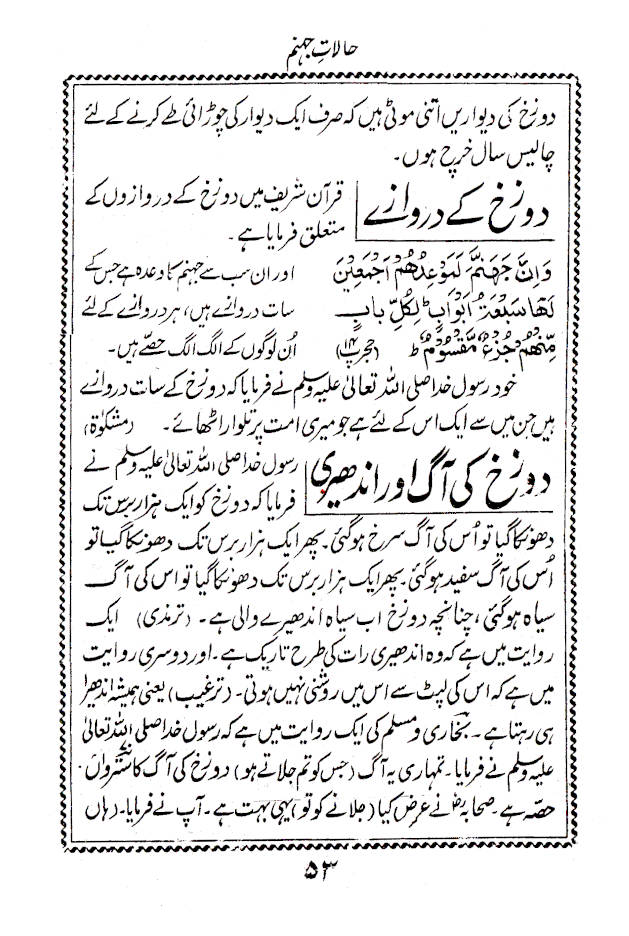 حالاتِ جہنم
دوزخ کی دیواریں اتنی موٹی ہیں کہ صرف ایک دیوار کی چوڑائی طے کرنے کے لئے
چالیس سال خرچ ہوں۔
دوزخ کے دروازے
قرآن شریف میں دوزخ کے دروازوں کے
متعلق فرمایا ہے۔
وَاِنَّ جَهَنَّمَ لَمَوْعِدُهُمْ اَجْمَعِیْنَ
لَهَا سَبْعَةُ اَبْوَابٍ ؕ لِکُلِّ بَابٍ
مِّنْهُمْ جُزْءٌ مَّقْسُوْمٌ ط (حجر پ ۱۴)
اور ان سب سے جہنم کا وعدہ ہے جس کے
سات دروازے ہیں، ہر دروازے کے لئے
اُن لوگوں کے الگ الگ حصّے ہیں۔
خود رسول خدا صلی اللہ تعالیٰ علیہ وسلم نے فرمایا کہ دوزخ کے سات دروازے
ہیں جن میں سے ایک اس کے لئے ہے جو میری امت پر تلوار اٹھائے۔ (مشکوٰۃ)
دوزخ کی آگ اور اندھیری
رسول خدا صلی اللہ تعالیٰ علیہ وسلم نے
فرمایا کہ دوزخ کو ایک ہزار برس تک
دھونکا گیا تو اُس کی آگ سرخ ہوگئی۔ پھر ایک ہزار برس تک دھونکا گیا تو
اُس کی آگ سفید ہوگئی۔ پھر ایک ہزار برس تک دھونکا گیا تو اس کی آگ
سیاہ ہوگئی، چنانچہ دوزخ اب سیاہ اندھیرے والی ہے۔ (ترمذی) ایک
روایت میں ہے کہ وہ اندھیری رات کی طرح تاریک ہے۔ اور دوسری روایت
میں ہے کہ اس کی لپٹ سے اس میں روشنی نہیں ہوتی۔ (ترغیب) یعنی ہمیشہ اندھیرا
ہی رہتا ہے۔ بخاری و مسلم کی ایک روایت میں ہے کہ رسول خدا صلی اللہ تعالیٰ
علیہ وسلم نے فرمایا۔ تمہاری یہ آگ (جس کو تم جلاتے ہو) دوزخ کی آگ کا سترواں
حصّہ ہے۔ صحابہؓ نے عرض کیا (جلانے کو تو) یہی بہت ہے۔ آپ نے فرمایا۔ (ہاں
۵۳